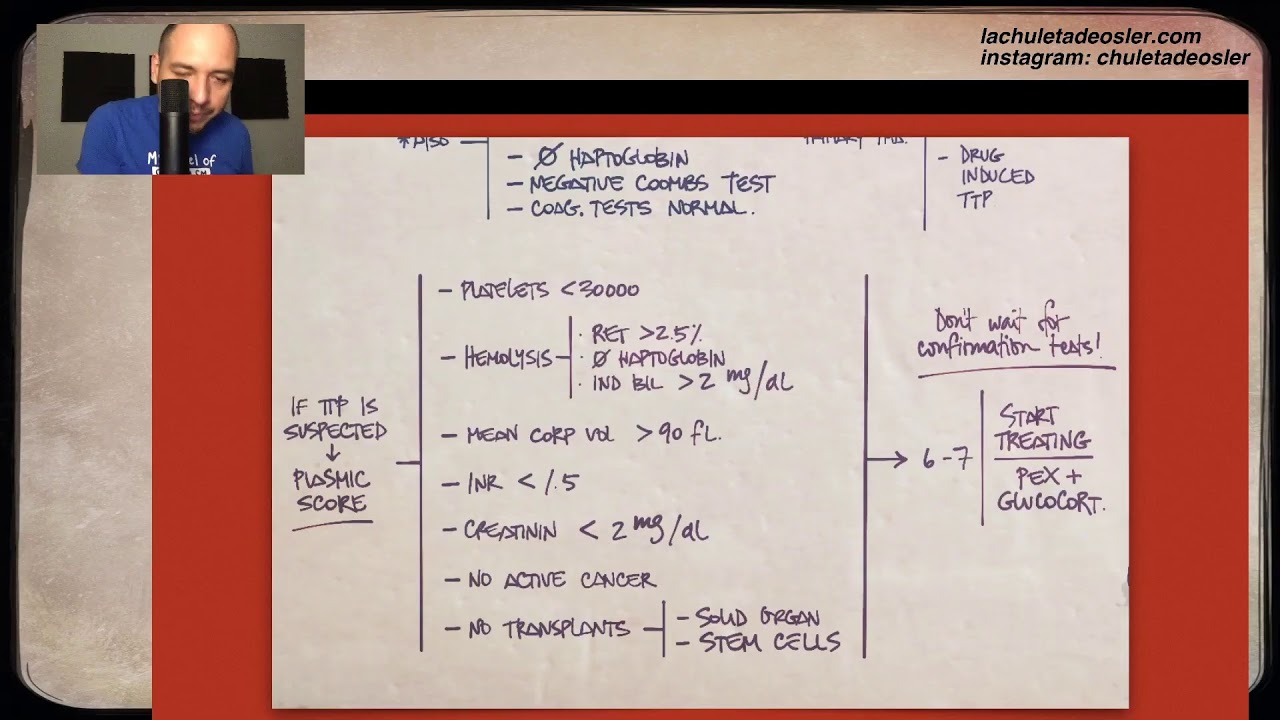 lachuletadeosler.com
instagram: chuletadeosler
- Ø HAPTOGLOBIN
- NEGATIVE COOMBS TEST
- COAG. TESTS NORMAL.
- DRUG
INDUCED
TTP
IF TTP IS
SUSPECTED
↓
PLASMIC
SCORE
- PLATELETS < 30000
- HEMOLYSIS
· RET > 2.5%
· Ø HAPTOGLOBIN
· IND BIL > 2 mg/dL
- MEAN CORP VOL > 90 fL.
- INR < 1.5
- CREATININ < 2 mg/dL
- NO ACTIVE CANCER
- NO TRANSPLANTS
- SOLID ORGAN
- STEM CELLS
Don't wait for
confirmation tests!
→ 6-7
START
TREATING
PEX +
GLUCOCORT.